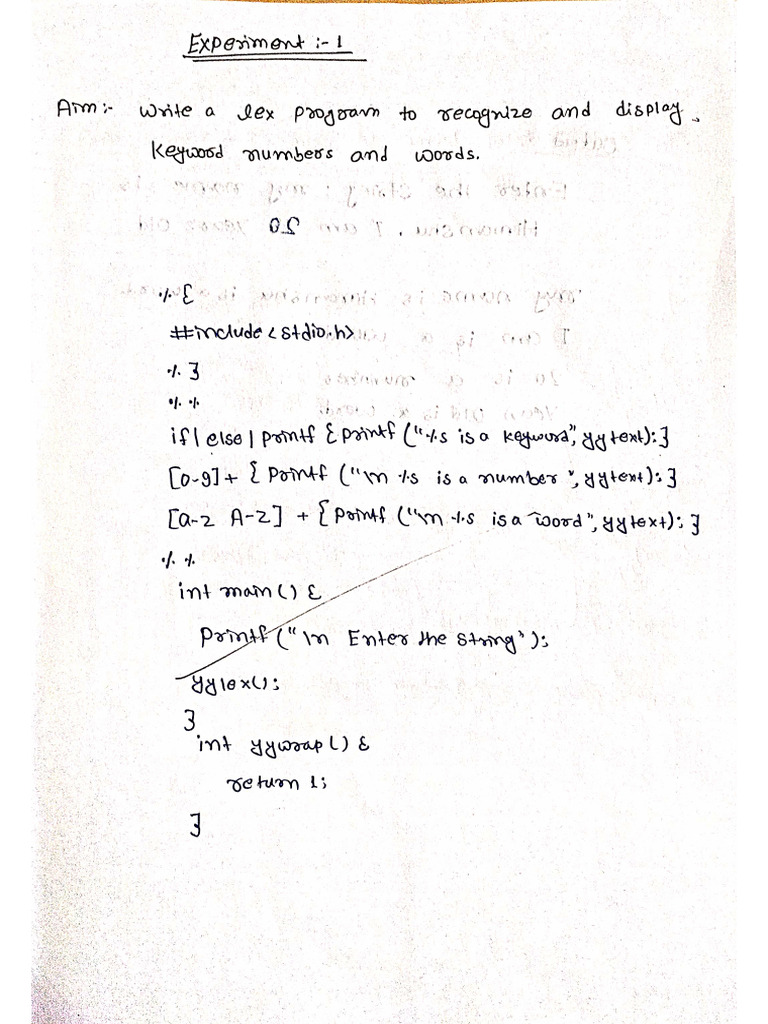 Experiment :- 1
Aim:- Write a lex program to recognize and display
Keyword numbers and words.
%{
#include<stdio.h>
%}
%%
if|else|printf {printf ("%s is a keyword", yytext);}
[0-9]+ {printf ("\n %s is a number", yytext);}
[a-z A-Z] + {printf ("\n %s is a word", yytext);}
%%
int main() {
printf ("\n Enter the string");
yylex();
}
int yywrap() {
return 1;
}